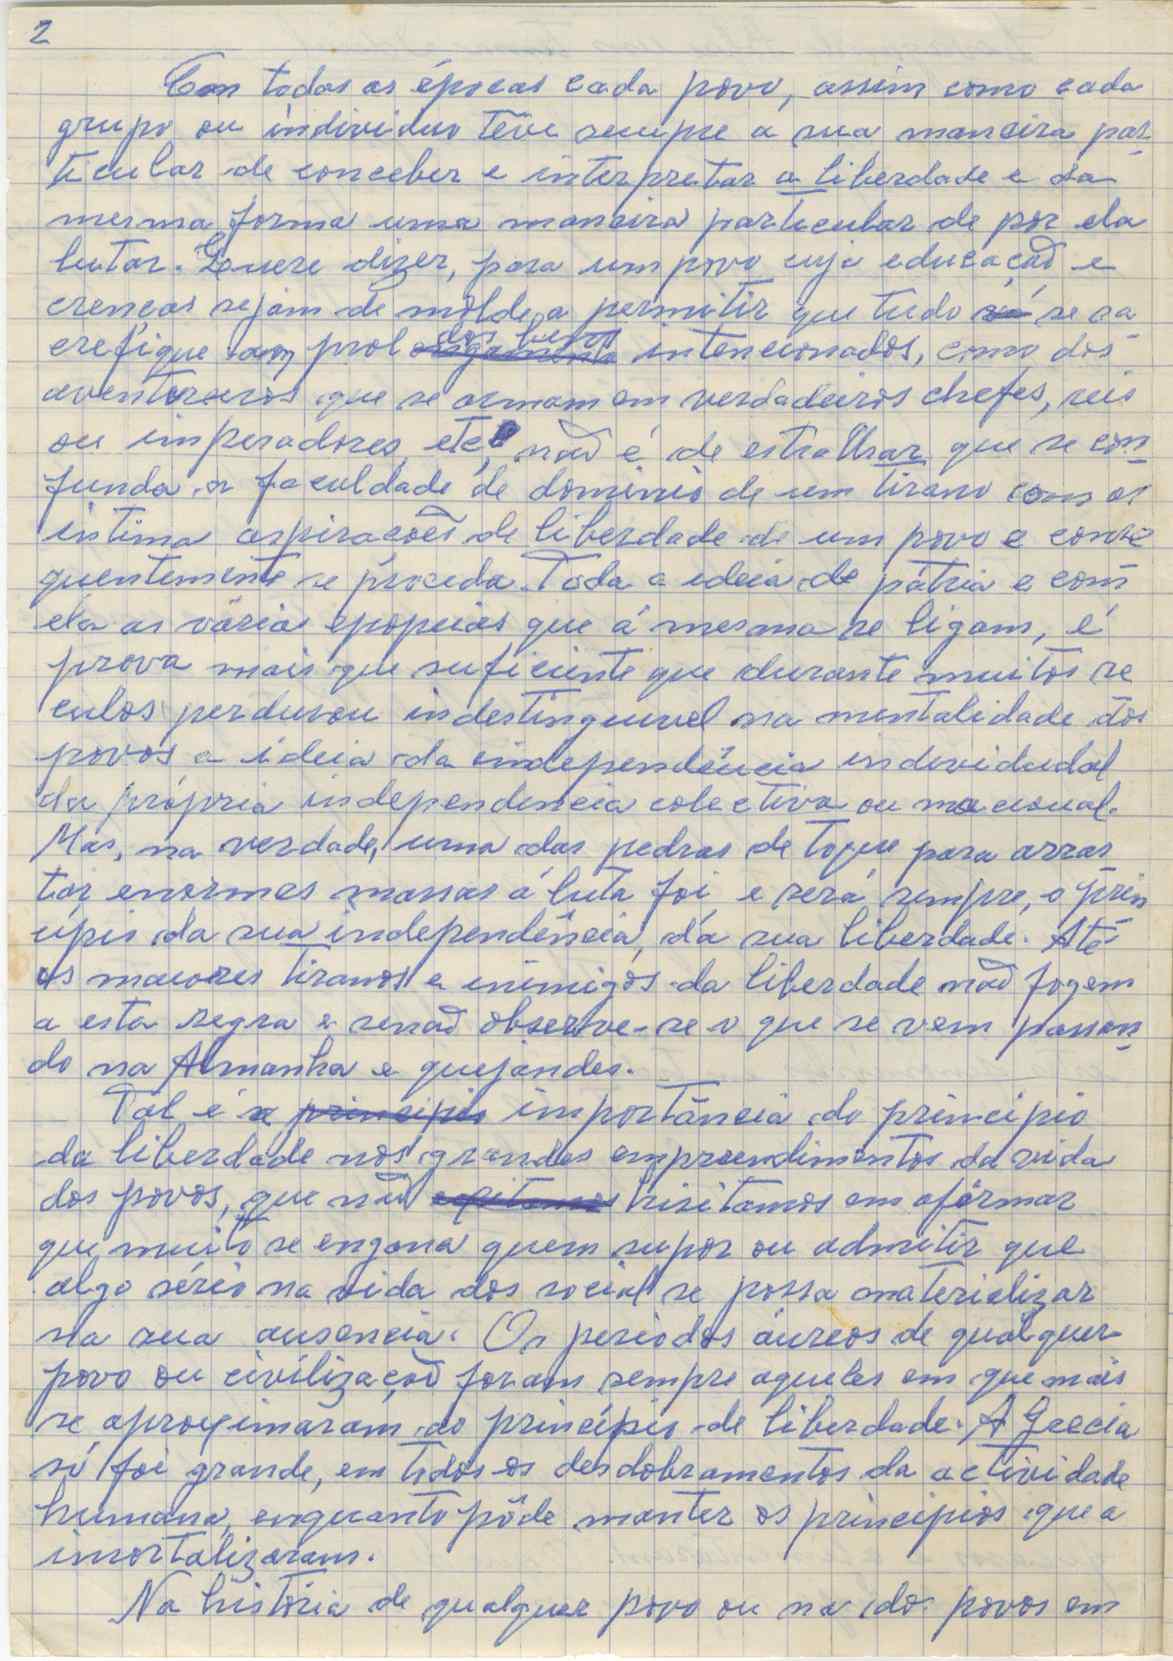 2
Em todas as épocas cada povo, assim como cada
grupo ou indivíduo têve sempre a sua maneira par
ticular de conceber e interpretar a liberdade e da
mesma forma uma maneira particular de por ela
lutar. Quere dizer, para um povo cuja educação e
crencas sejam de molde a permitir que tudo se sa
crefique em prol dos bens intencionados, como dos
aventureiros que se armam em verdadeiros chefes, reis
ou imperadores, etc, não é de estralhar que se con
funda a faculdade de dominio de um tirano com as
intima aspirações de liberdade de um povo e conse
quentemente se proceda. Toda a ideia de pátria e com
ela as vária epopeias que á mesma se ligam, é
prova mais que suficiente que durante muitos se
culos perdurou indestinguivel na mentalidade dos
povos a ideia da independência individual
da própria independencia colectiva ou nacional.
Mas, na verdade, uma das pedras de toque para arras
tar enormes massas á luta foi e será sempre, o prin
cípio da sua independência, da sua liberdade. Até
os maiores tiranos e inimigos da liberdade não fogem
a esta regra e senão observe-se o que se vem passan
do na Almanha e quejandes.
Tal é a principio importância do principio
da liberdade nos grandes empreendimentos da vida
dos povos, que não hisitamos em afirmar
que muito se engana quem supor ou admitir que
algo sério na vida dos social se possa materializar
na sua ausencia. Os periodos áureos de qualquer
povo ou civilização foram sempre aqueles em que mais
se aproximaram do princípio de liberdade. A Grecia
só foi grande, em todos os desdobramentos da actividade
humana, enquanto pôde manter os principios que a
imortalizaram.
Na história de qualquer povo ou na dos povos em